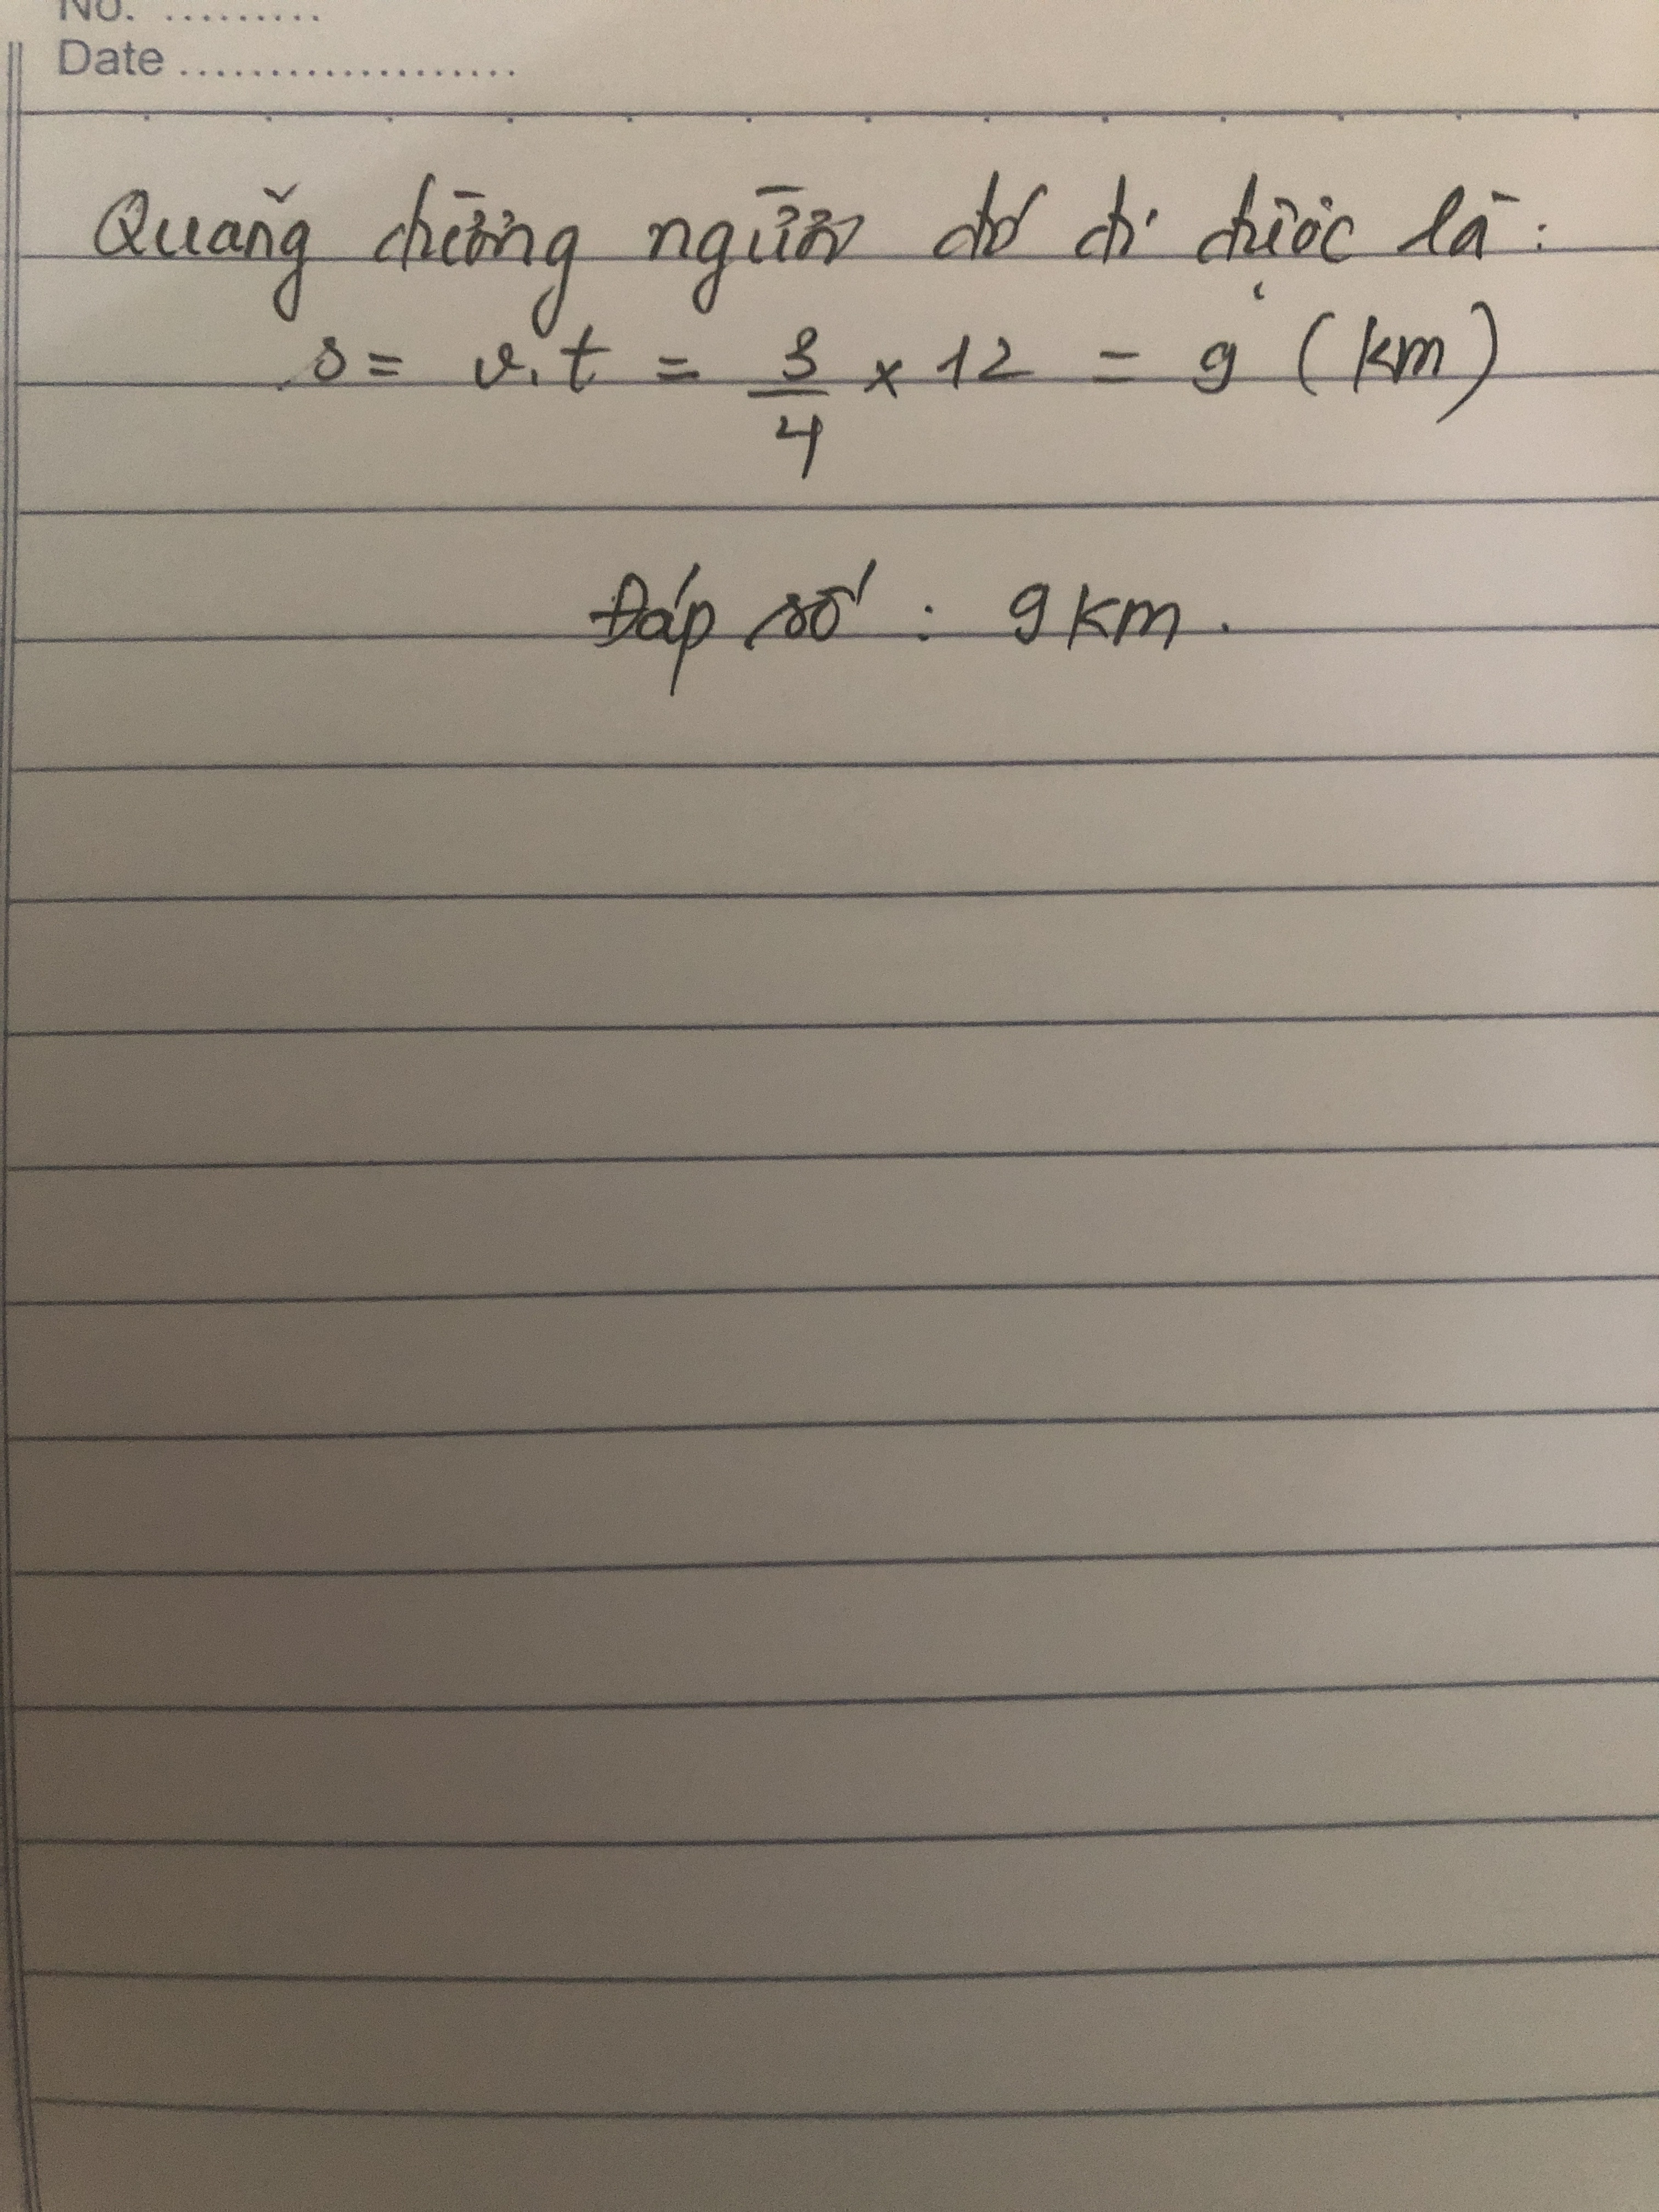 No. .........
Date ....................
Quãng đường người đó đi được là:
s = v.t = 3/4 x 12 = 9 (km)
Đáp số : 9 km.